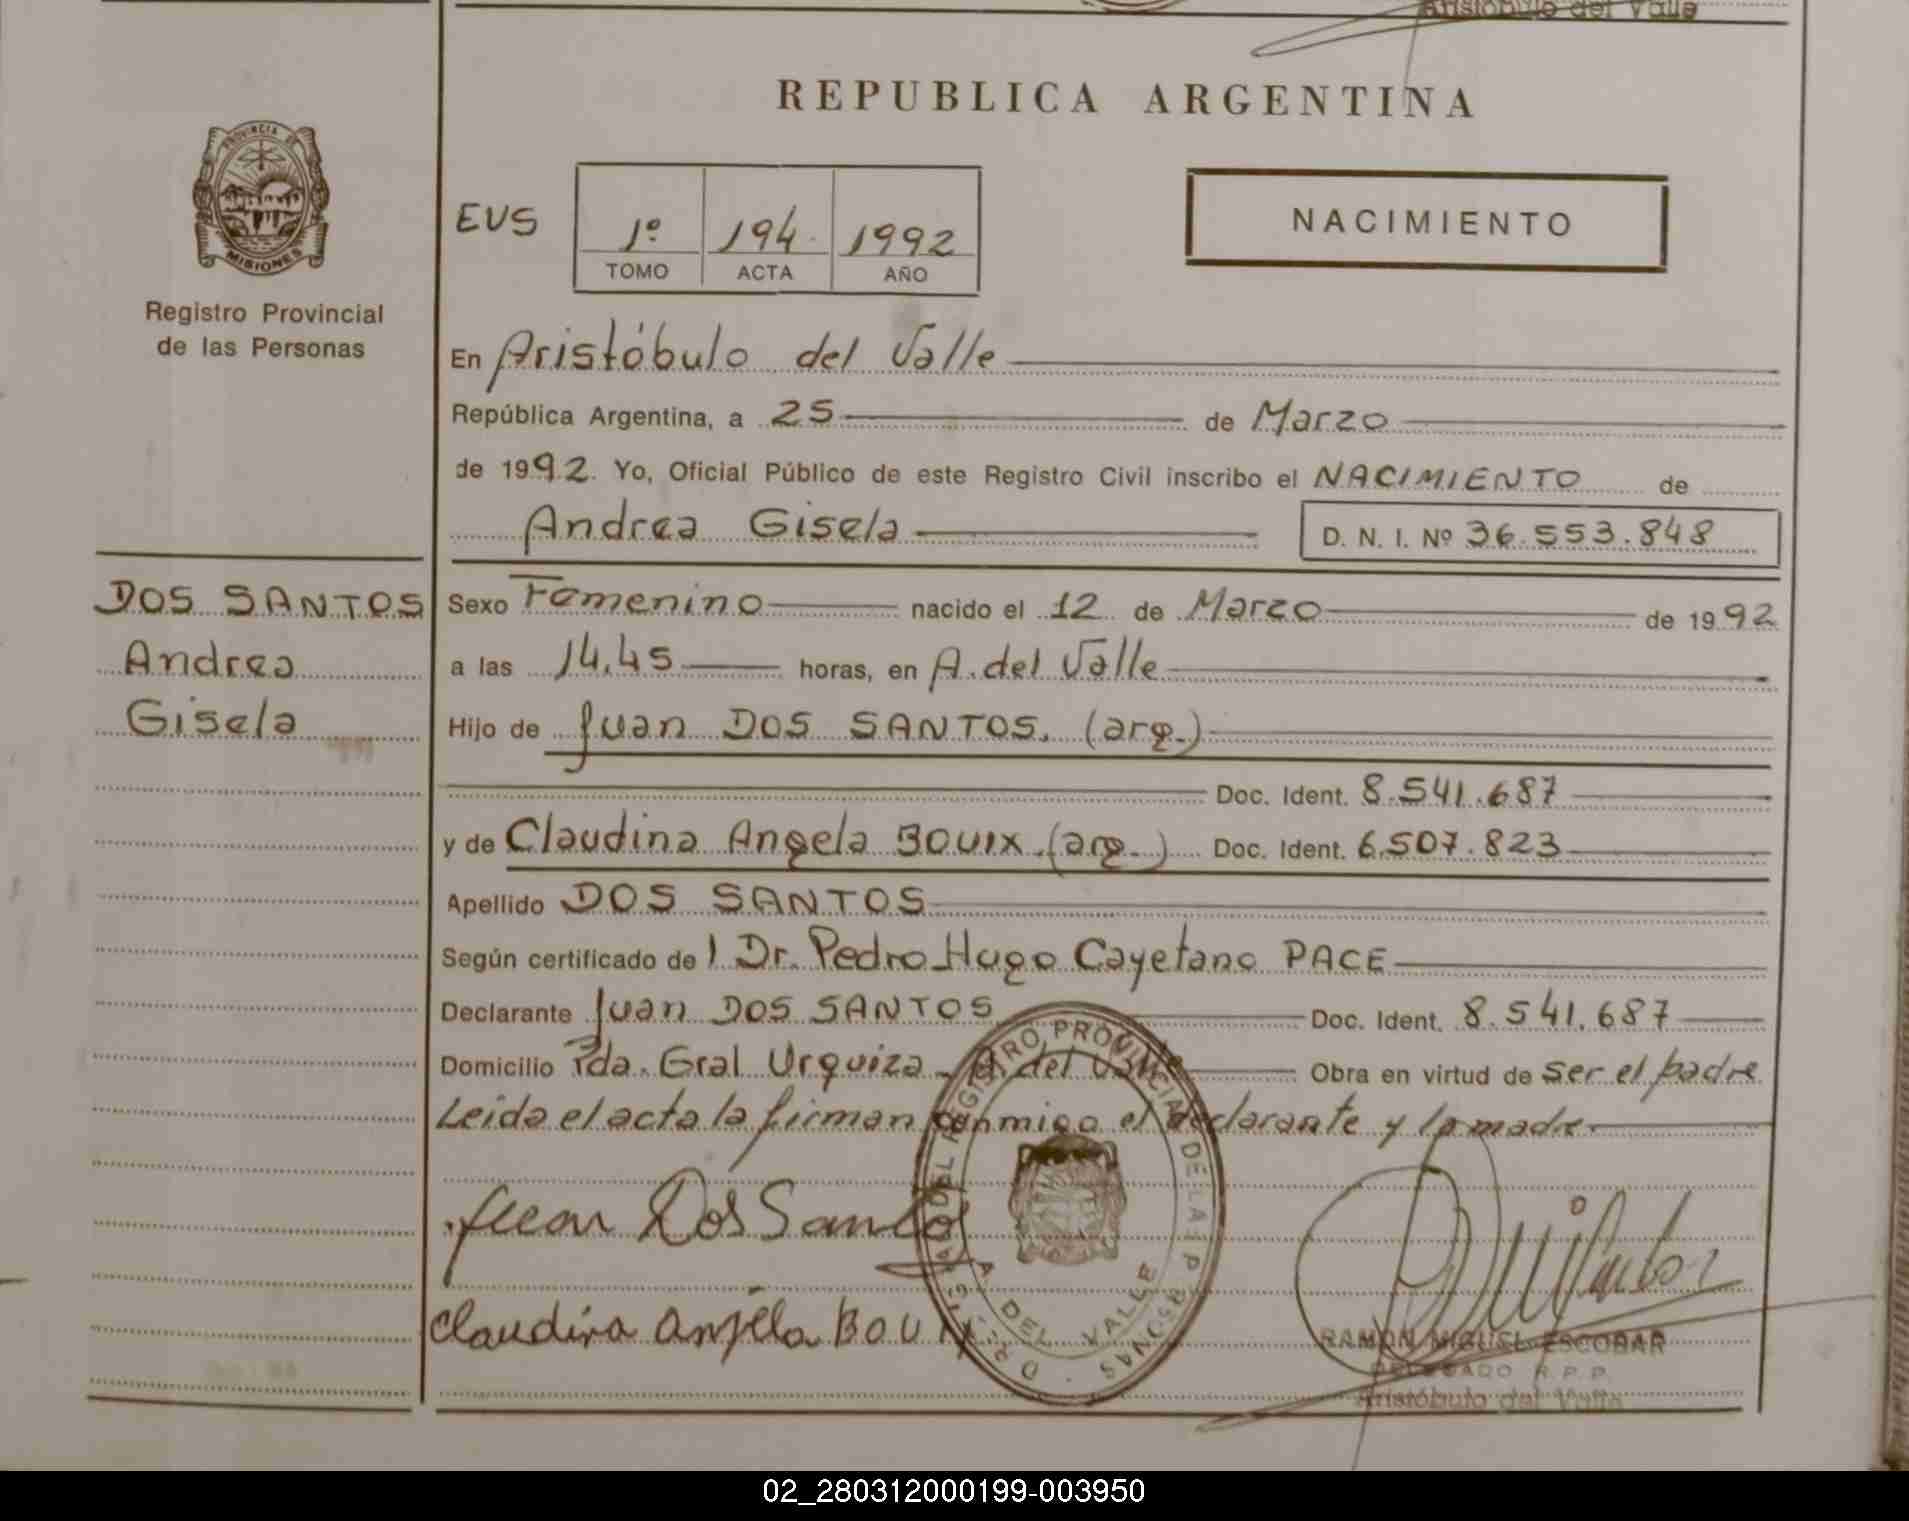 Aristóbulo del Valle
REPUBLICA ARGENTINA
PROVINCIA DE
MISIONES
Registro Provincial
de las Personas
EVS
1º 194 1992
TOMO ACTA AÑO
NACIMIENTO
En Aristóbulo del Valle
República Argentina, a 25 de Marzo
de 1992. Yo, Oficial Público de este Registro Civil inscribo el NACIMIENTO de
Andrea Gisela D. N. I. Nº 36.553.848
DOS SANTOS
Andrea
Gisela
Sexo Femenino nacido el 12 de Marzo de 1992
a las 14,45 horas, en A. del Valle
Hijo de Juan DOS SANTOS. (arg.)
Doc. Ident. 8.541.687
y de Claudina Angela BOUIX. (arg.) Doc. Ident. 6.507.823
Apellido DOS SANTOS
Según certificado del Dr. Pedro Hugo Cayetano PACE
Declarante Juan DOS SANTOS Doc. Ident. 8.541.687
Domicilio Pda. Gral Urquiza - A. del Valle Obra en virtud de ser el padre
Leida el acta la firman conmigo el declarante y la madre
Juan Dos Santos
Claudina Anjela BOUIX
REGISTRO PROVINCIAL DE LAS PERSONAS
A. DEL VALLE
RAMON MIGUEL ESCOBAR
DELEGADO R.P.P.
Aristóbulo del Valle
02_280312000199-003950